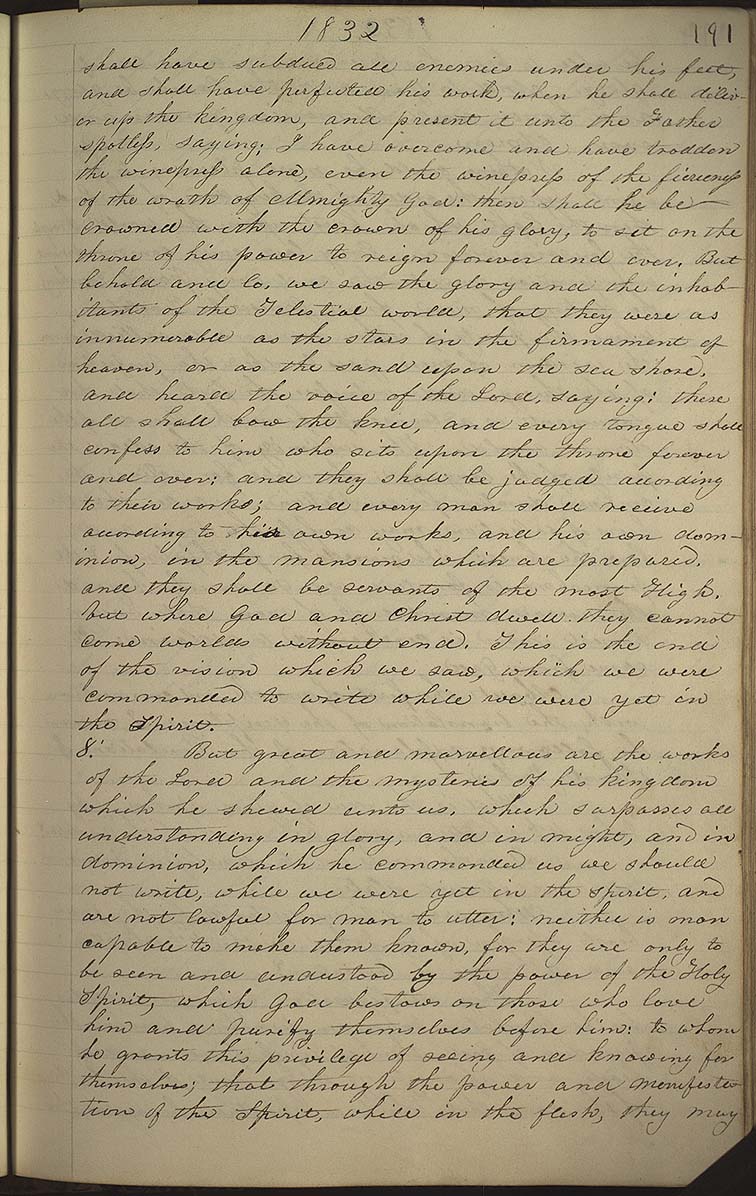 1832
191
shall have subdued all enemies under his feet,
and shall have perfected his work, when he shall deliv-
er up the kingdom, and present it unto the Father
spotless, saying; I have overcome and have trodden
the winepress alone, even the winepress of the fierceness
of the wrath of Almighty God: then shall he be
crowned with the crown of his glory, to sit on the
throne of his power to reign forever and ever. But
behold and lo, we saw the glory and the inhab-
itants of the Telestial world, that they were as
innumerable as the stars in the firmament of
heaven, or as the sand upon the sea shore,
and heard the voice of the Lord, saying: these
all shall bow the knee, and every tongue shall
confess to him who sits upon the throne forever
and ever: and they shall be judged according
to their works; and every man shall receive
according to his own works, and his own dom-
inion, in the mansions which are prepared,
and they shall be servants of the most High.
but where God and Christ dwell they cannot
come worlds without end. This is the end
of the vision which we saw, which we were
commanded to write while we were yet in
the Spirit.
8. But great and marvellous are the works
of the Lord and the mysteries of his kingdom
which he shewed unto us, which surpasses all
understanding in glory, and in might, and in
dominion, which he commanded us we should
not write, while we were yet in the spirit, and
are not lawful for man to utter: neither is man
capable to make them known, for they are only to
be seen and understood by the power of the Holy
Spirit, which God bestows on those who love
him and purify themselves before him: to whom
he grants this privilege of seeing and knowing for
themselves; that through the power and manifesta-
tion of the Spirit, while in the flesh, they may